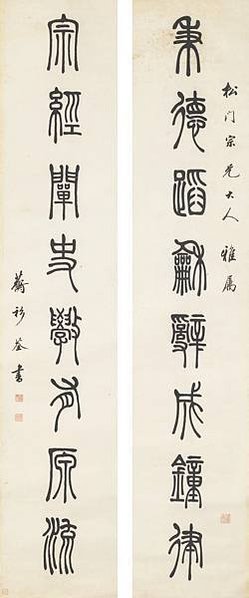 松門宗兄大人 雅屬
秉德蹈龢辭成鐘律
宗經闡史學有原流
書